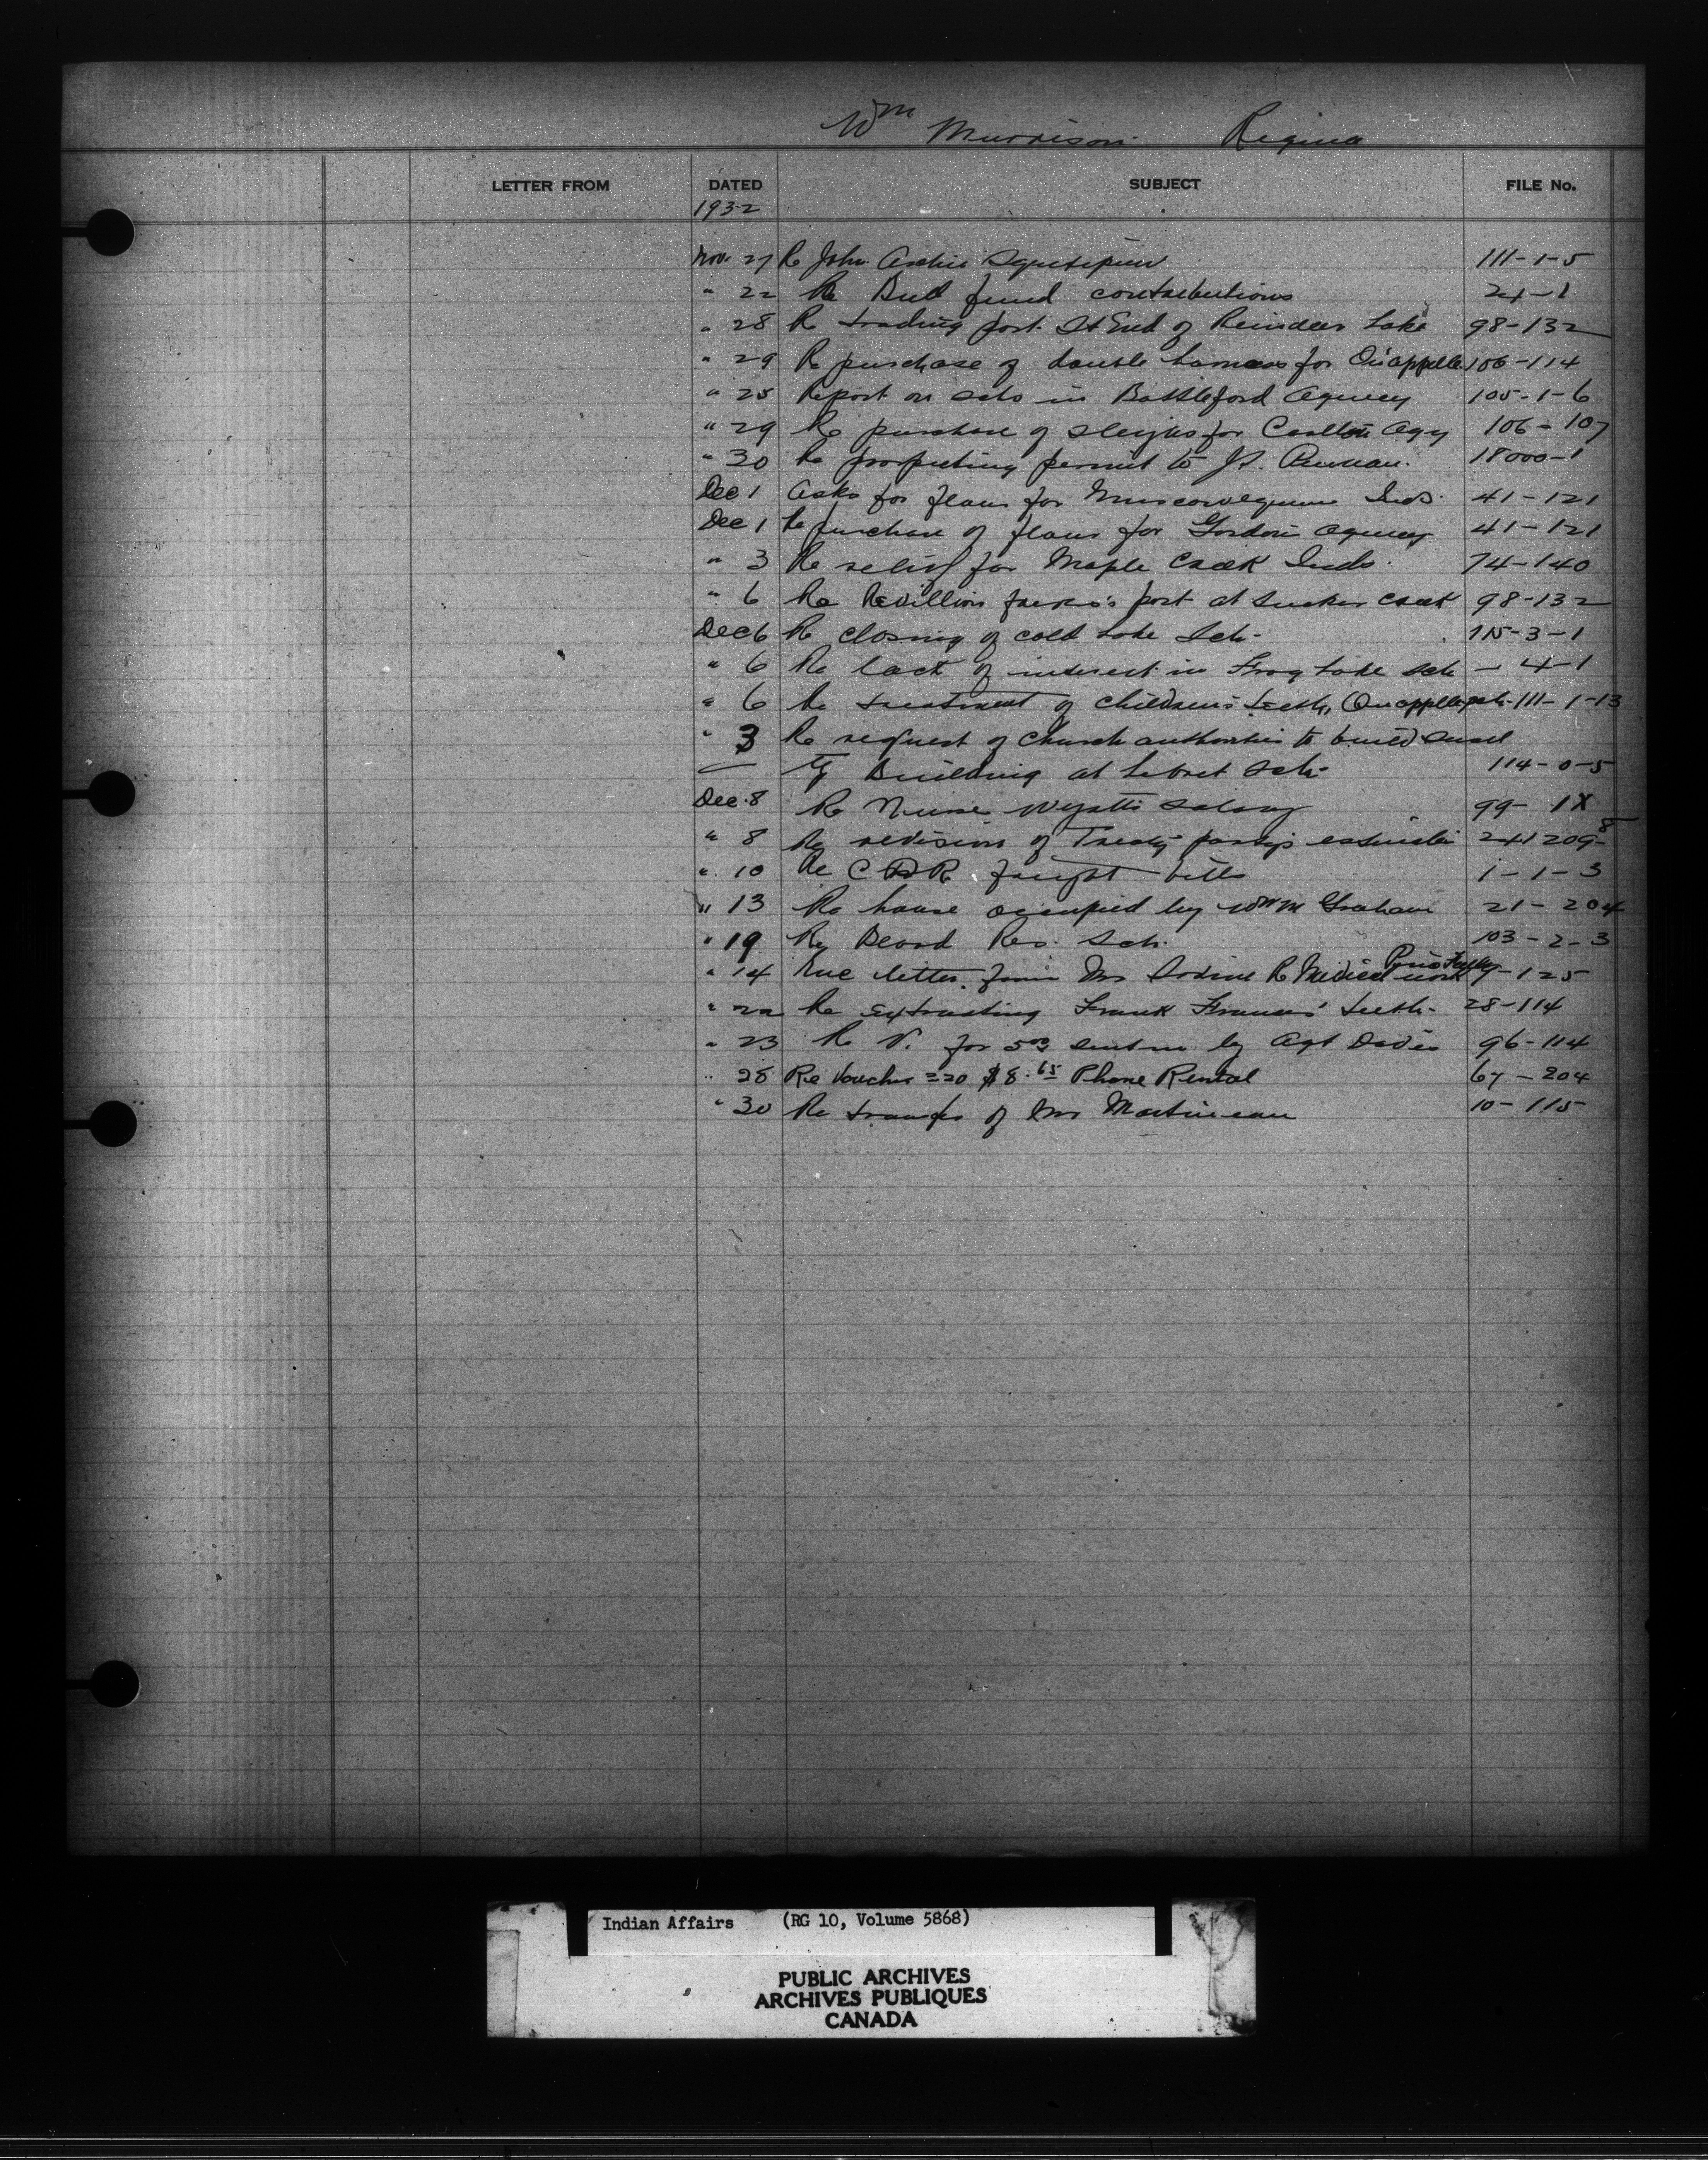 Wm Murrison Regina
LETTER FROM DATED SUBJECT FILE No.
1932
Nov. 27 Re John Archie 111-1-5
" 22 Re Bull fund contributions 24-1
" 28 Re trading post End of Reindeer Lake 98-132
" 29 Re purchase of double harness for Qu'appelle 106-114
" 25 Report on schs in Battleford Agency 105-1-6
" 29 Re purchase of sleighs for Carlton Agy 106-107
" 30 Re prospecting permit to 18000-1
Dec 1 Asks for flour for Muscowequan Inds. 41-121
Dec 1 Re purchase of flour for Gordon's Agency 41-121
" 3 Re relief for Maple Creek Inds. 74-140
" 6 Re Revillion post at Sucker Creek 98-132
Dec 6 Re closing of Cold Lake Sch- 115-3-1
" 6 Re lack of interest in Frog Lake Sch - 4-1
" 6 Re treatment of children's teeth, Qu'appelle sch. 111-1-13
" 3 Re request of Church authorities to build small
Building at Lebret Sch- 114-0-5
Dec. 8 Re Nurse Wyatt's salary 99- 1X
" 8 Re revision of Treaty party's estimates 241209-8
" 10 Re C P R freight bills 1-1-3
" 13 Re house occupied by Wm M Graham 21-204
" 19 Re Res. Sch. 103-2-3
" 14 Enc letter from Mrs Re Medical work -125
" 22 Re extracting Frank Francis' teeth. 28-114
" 23 Re V. for by Agt Davis 96-114
" 28 Re Voucher 220 $8.65 Phone Rental 67-204
" 30 Re transfer of Mrs Martineau 10-115
Indian Affairs (RG 10, Volume 5868)
PUBLIC ARCHIVES
ARCHIVES PUBLIQUES
CANADA